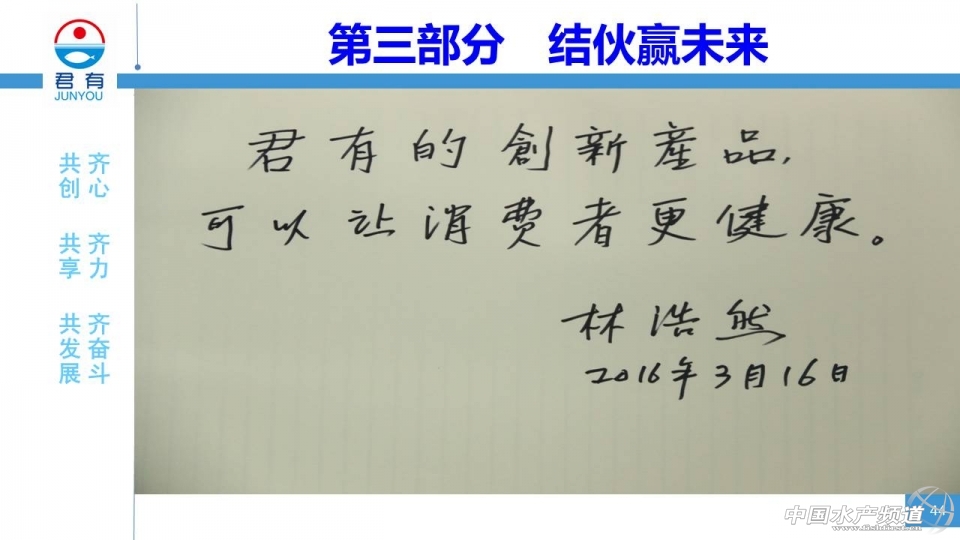 第三部分 结伙赢未来
君有
JUNYOU
齐心
共创
齐力
共享
齐奋斗
共发展
君有的創新產品,
可以让消费者更健康。
林浩然
2016年3月16日
44
中国水产频道
www.fishfirst.cn